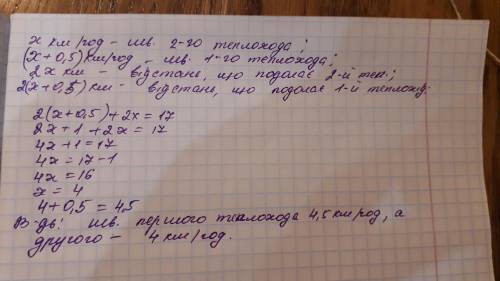 x км/год – шв. 2-го теплохода;
(x+0,5) км/год – шв. 1-го теплохода;
2x км – відстань, що подолає 2-й теп.;
2(x+0,5) км – відстань, що подолає 1-й теплохід.
2(x+0,5)+2x=17
2x+1+2x=17
4x+1=17
4x=17-1
4x=16
x=4
4+0,5=4,5
В-дь: шв. першого теплохода 4,5 км/год, а
другого – 4 км/год.